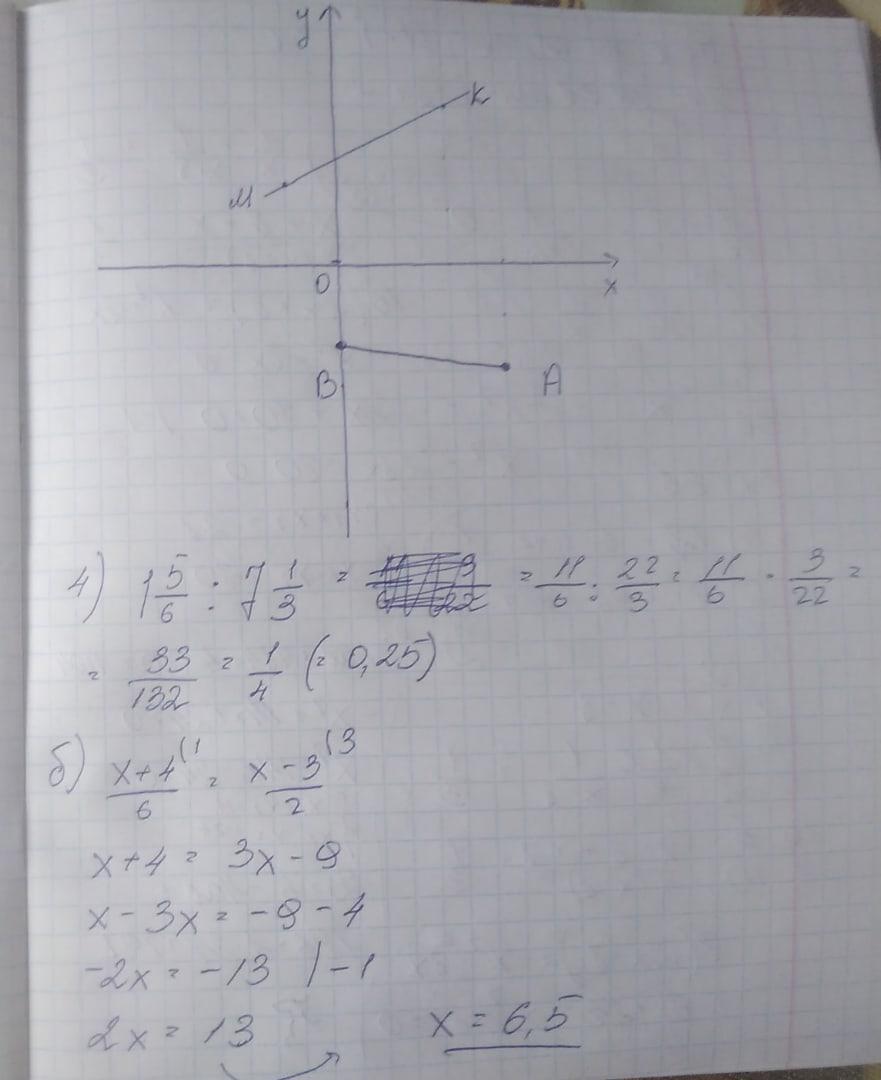 y
K
M
O
x
B
A
4) 1 5/6 : 7 1/3 = = 11/6 : 22/3 = 11/6 · 3/22 =
= 33/132 = 1/4 (= 0,25)
б) x+4/6 (1 = x-3/2 (3
x+4 = 3x-9
x-3x = -9-4
-2x = -13 |-1
2x = 13
x = 6,5